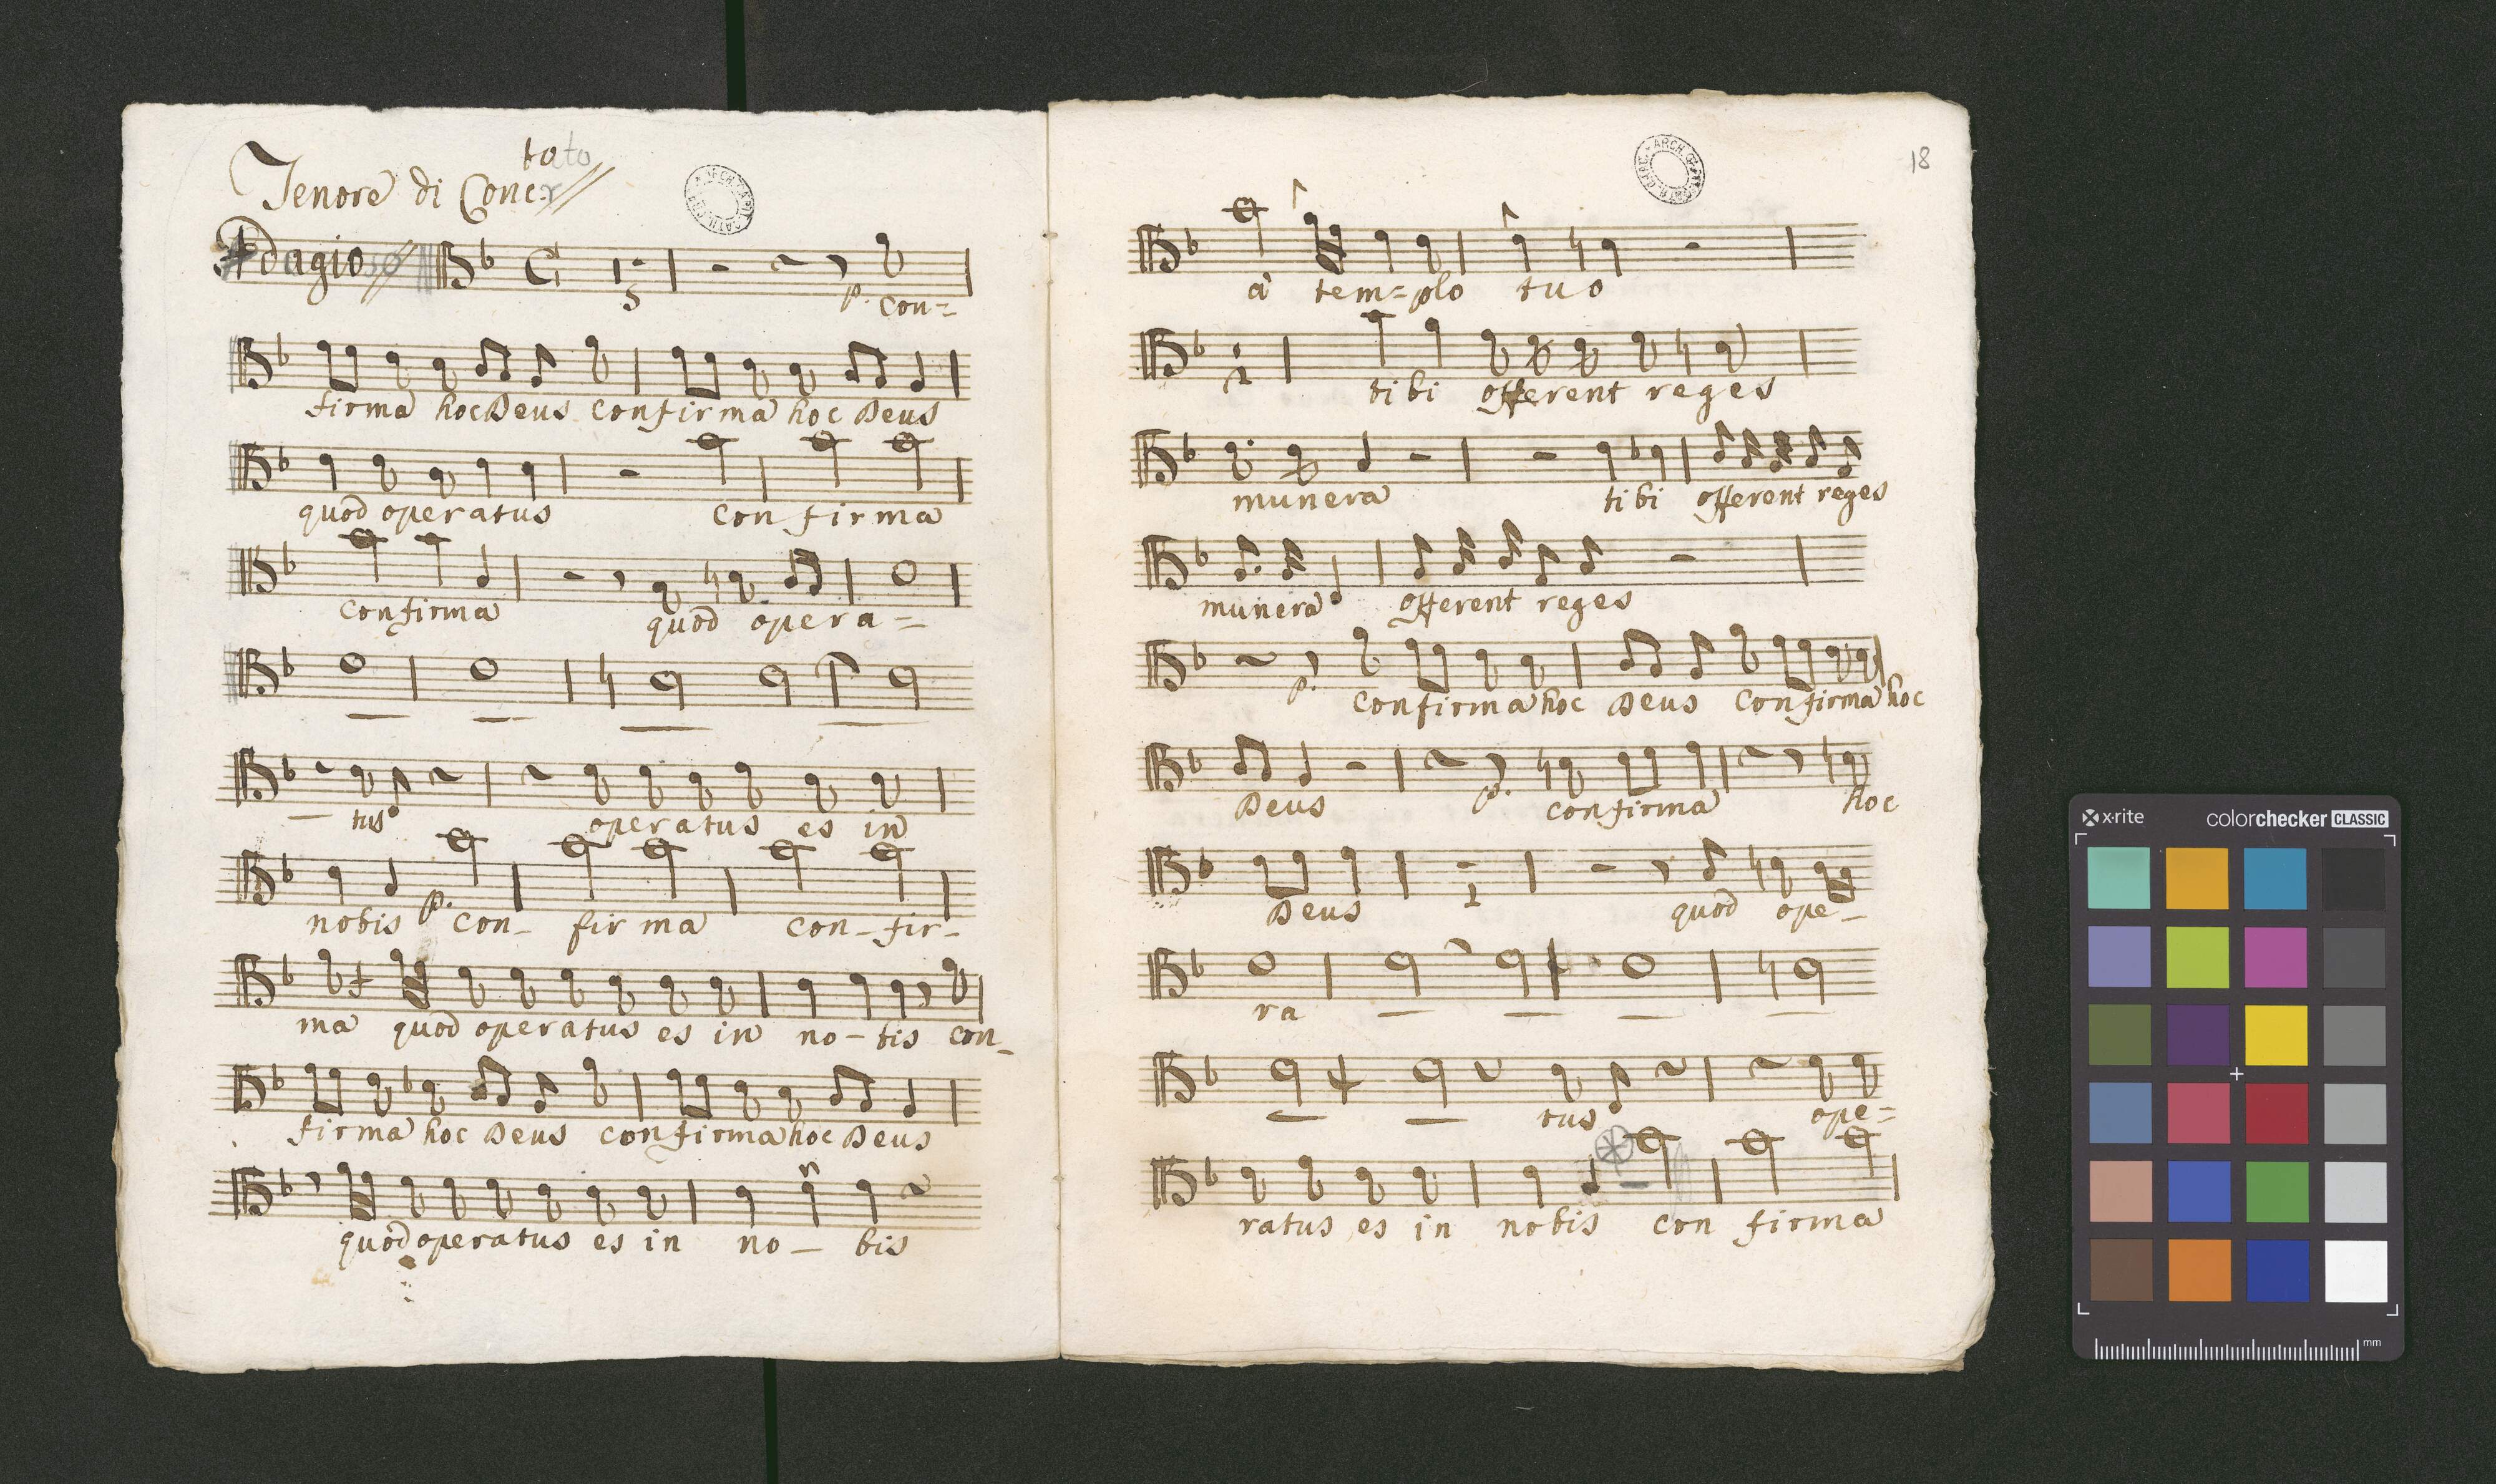 Tenore di Conc.to
Adagio
5 p. con=
firma hoc Deus confirma hoc Deus
quod operatus con firma
confirma quod opera=
tus operatus es in
nobis p. con- fir ma con-fir-
ma quod operatus es in no-bis con-
firma hoc Deus confirma hoc Deus
quod operatus es in no- bis
18
à tem=plo tuo
2 tibi offerent reges
munera tibi offerent reges
munera offerent reges
p. confirma hoc Deus confirma hoc
Deus p. confirma hoc
Deus 1 quod ope-
ra
tus ope=
ratus es in nobis con firma
x-rite colorchecker CLASSIC
mm